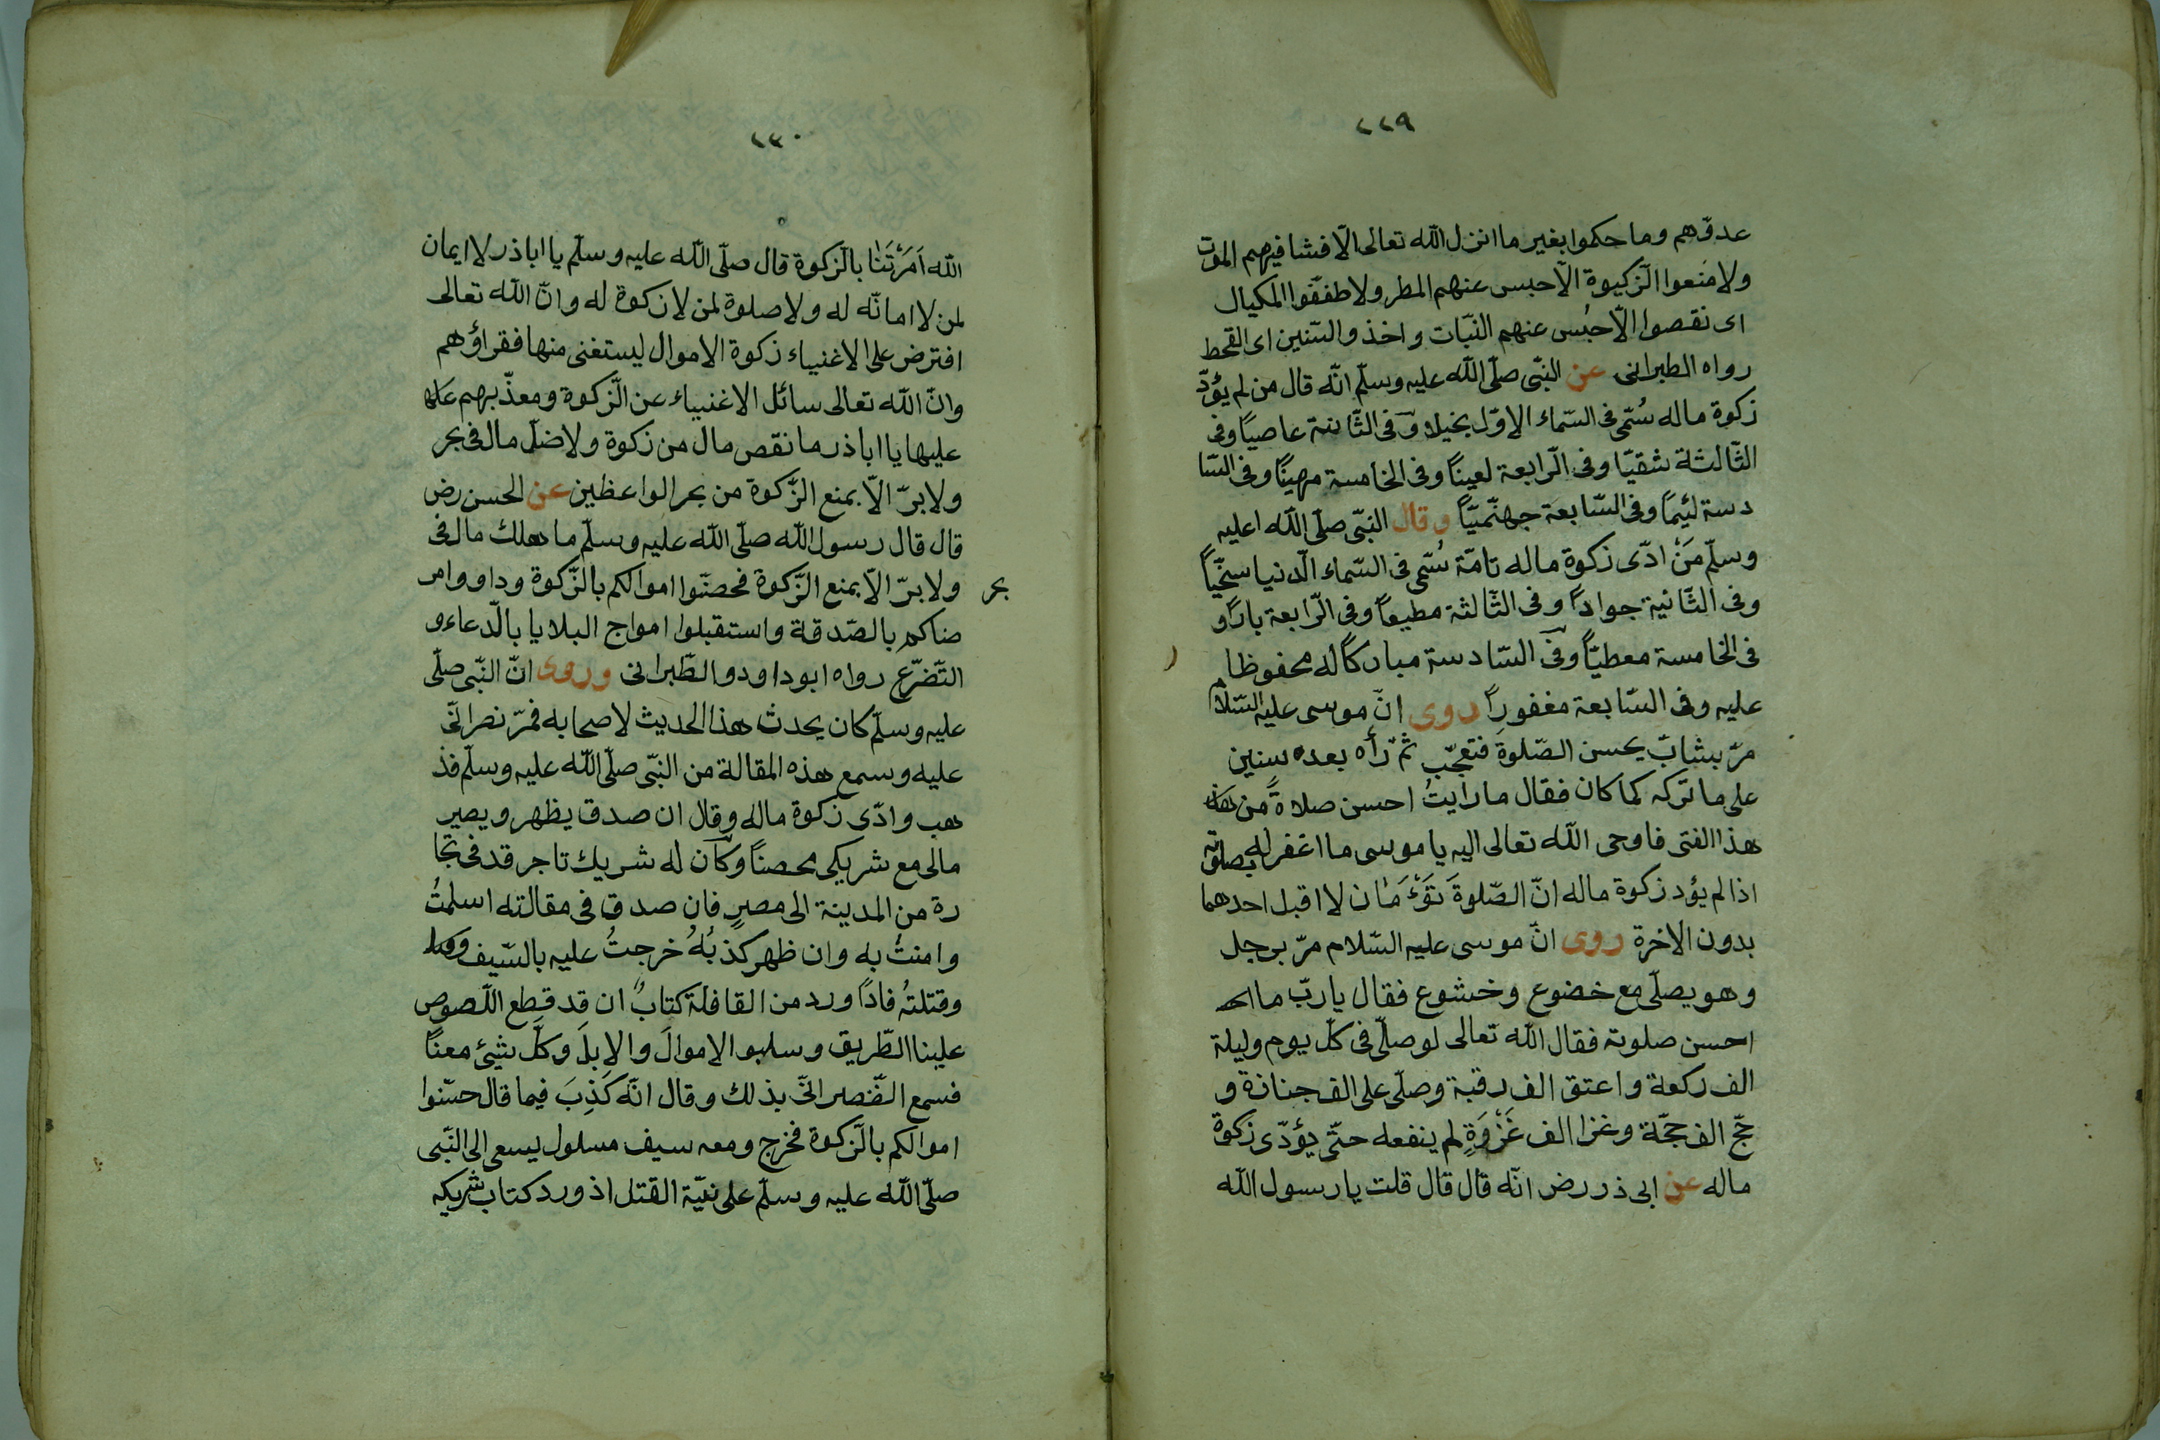 ٢٢٩
عدوّهم وما حكموا بغير ما انزل الله تعالى الّا فشا فيهم الموت
ولا منعوا الزّكيوة الّا حبس عنهم المطر ولا طفّفوا المكيال
اى نقصوا الّا حُبس عنهم النّبات واخذ والسّنين اى القحط
رواه الطبرانى عن النّبى صلّى الله عليه وسلّم انّه قال من لم يؤدّ
زكوة ماله سُمّى فى السّماء الاوّل بخيلا وفى الثّانية عاصيًا وفى
الثّالثة شقيّا وفى الرّابعة لعينًا وفى الخامسة مهينًا وفى السّا
دسة لئيمًا وفى السّابعة جهنّميّاً وقال النبّى صلّى الله اعليه
وسلّم مَنْ ادّى زكوة ماله تامّة سُمّى فى السّماء الدّنيا سخيّاً
وفى الثّانية جواداً وفى الثّالثة مطيعاً وفى الرّابعة بارًاو
فى الخامسة معطيّاً وفى السّادسة مباركاً له محفوظا
عليه وفى السّابعة مغفوراً روى انّ موسى عليه السّلام
مرّ بشابّ يحسن الصّلوة فتعجّب ثمّ رأه بعده سنين
على ما تركه كما كان فقال ما رايتُ احسن صلاةً من
هذا الفتى فاوحى الله تعالى اليه يا موسى ما اغفر له بصلوته
اذا لم يؤد زكوة ماله انّ الصّلوةَ تَوْءَمَان لا اقبل احدهما
بدون الاخرة روى انّ موسى عليه السّلام مرّ برجل
وهو يصلّى مع خضوع وخشوع فقال يا ربّ ما
احسن صلوته فقال الله تعالى لو صلّى فى كلّ يوم وليلة
الف ركعة واعتق الف رقبة وصلّى على الف جنازة و
حجّ الف حجّة وغزا الف غَزْوَةٍ لم ينفعه حتّى يؤدّى زكوة
ماله عن ابى ذر رض انّه قال قال قلت يا رسول الله
٢٣٠
الله اَمَرْتَنَا بالزّكوة قال صلّى الله عليه وسلّم يا اباذر لا ايمان
لمن لا امانّه له ولا صلوة لمن لا زكوة له وانّ الله تعالى
افترض على الاغنياء زكوة الاموال ليستغنى منها فقراؤهم
وانّ الله تعالى سائل الاغنياء عن الزّكوة ومعذّبهم
عليها يا اباذر ما نقص مال من زكوة ولا ضلّ مال فى بحر
ولا برّ الّا بمنع الزّكوة من بحر الواعظين عن الحسن رض
قال قال رسول الله صلّى الله عليه وسلّم ما هلك مال فى
بحر
ولا برّ الّا بمنع الزّكوة فحصّنوا اموالكم بالزّكوة وداووامر
ضاكم بالصّدقة واستقبلوا امواج البلايا بالدّعاءو
التّضرّع رواه ابو داود والطّبرانى وروى انّ النّبى صلّى
عليه وسلّم كان يحدث هذا الحديث لاصحابه فمرّ نصرانّى
عليه وسمع هذه المقالة من النّبى صلّى الله عليه وسلّم فذ
هب وادّى زكوة ماله وقال ان صدق يظهر ويصير
مالى مع شريكى محصناً وكان له شريك تاجر قد فى تجا
رة من المدينة الى مصرٍ فان صدق فى مقالته اسلمتُ
وامنتُ به وان ظهر كذبُهُ خرجتُ عليه بالسّيف
وقتلتهُ فاذًا ورد من القافلة كتابٌ ان قد قطع اللّصوص
علينا الطّريق وسلبو الاموالَ والابلَ وكلَّ شيئ معنًا
فسمع النّصرانّى بذلك وقال انّه كَذِبَ فيما قال حسّنوا
اموالكم بالزّكوة فخرج ومعه سيف مسلول يسعى الى النّبى
صلّى الله عليه وسلّم على نيّة القتل اذ ورد كتاب شريكه